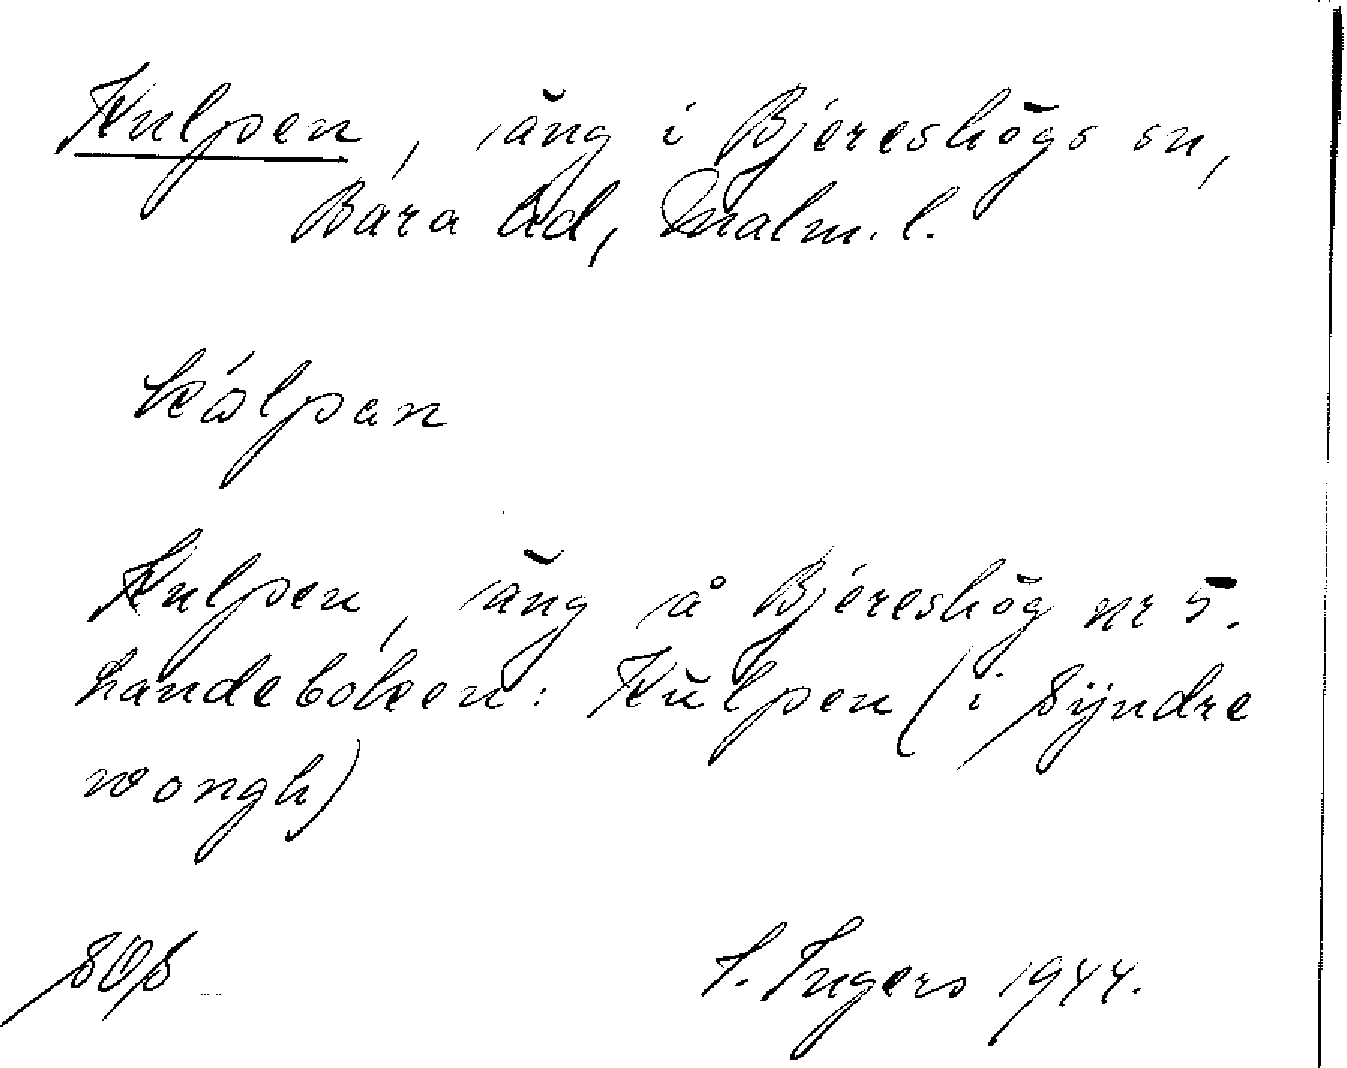 Kulpen, äng i Bjäreshögs sn,
Bara hd, Malm. l.
kólpan
Kulpen, äng å Bjäreshög nr 5.
Landeboken: Kulpen (i Syndre
wongh)
SOS
I. Ingers 1944.